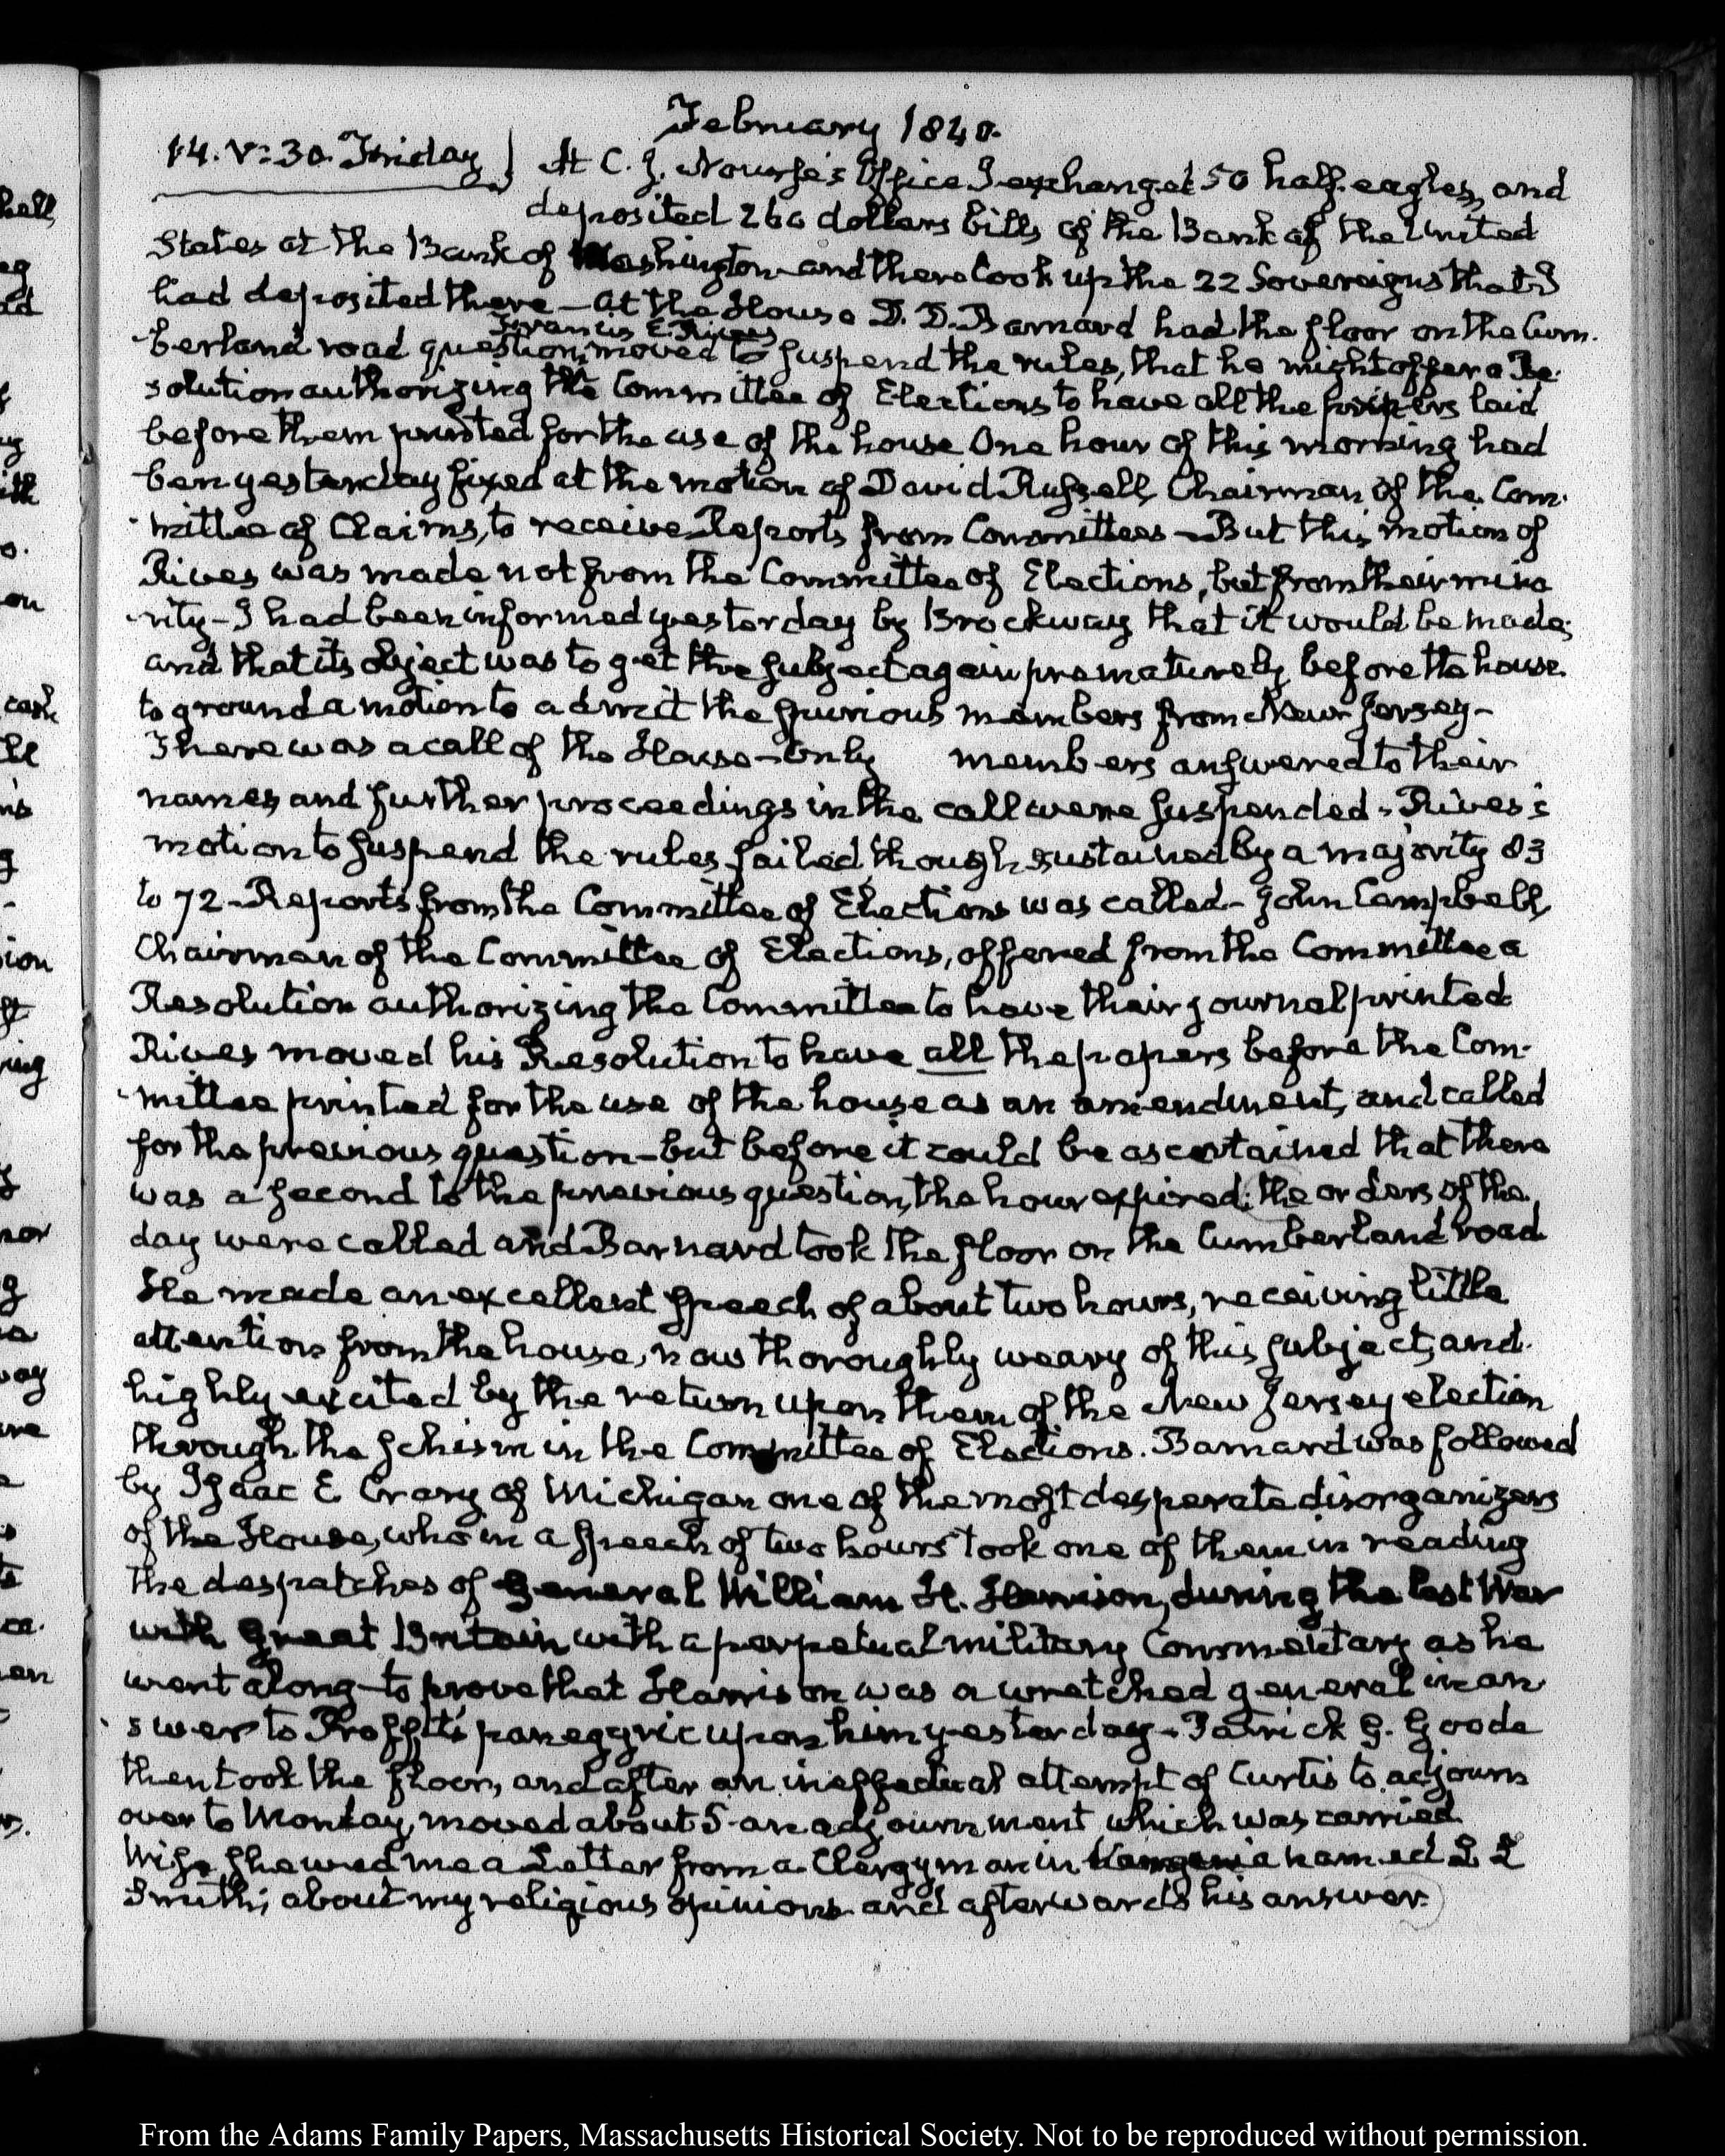 February 1840.
14. V:30. Friday
At C. J. Nourse's Office I exchanged 50 half-eagles, and
deposited 260 dollars bills of the Bank of the United
States at the Bank of Washington and there took up the 22 Sovereigns that I
had deposited there — At the House D. D. Barnard had the floor on the Cum-
Francis E. Rives
-berland road question, moved to suspend the rules, that he might offer a Re-
solution authorizing the Committee of Elections to have all the papers laid
before them printed for the use of the house One hour of this morning had
ben yesterday fixed at the motion of David Russell, Chairman of the Com-
-mittee of Claims, to receive Reports from Committees — But this motion of
Rives was made not from the Committee of Elections, but from their mino
-rity — I had been informed yesterday by Brockway that it would be made;
and that its object was to get the subject again prematurely before the house.
to ground a motion to admit the spurious members from New-Jersey —
There was a call of the House — Only members answered to their
names and further proceedings in the call were suspended — Rives's
motion to suspend the rules failed, though sustained by a majority 83
to 72 — Reports from the Committee of Elections was called — John Campbell,
Chairman of the Committee of Elections, offered from the Committee a
Resolution authorizing the Committee to have their journal printed
Rives moved his Resolution to have all the papers before the Com-
-mittee printed for the use of the house as an amendment, and called
for the previous question — but before it could be ascertained that there
was a second to the previous question, the hour expired: the orders of the
day were called and Barnard took the floor on the Cumberland road
He made an excellent speech of about two hours, receiving little
attention from the house, now thoroughly weary of this subject, and
highly excited by the return upon them of the New Jersey election
through the schism in the Committee of Elections. Barnard was followed
by Isaac E. Crary of Michigan one of the most desperate disorganizers
of the House, who in a speech of two hours took one of them in reading
the despatches of General William H. Harrison, during the last War
with Great Britain with a perpetual military Commentary as he
went along — to prove that Harrison was a wretched general in an-
-swer to Proffit's panegyric upon him yesterday — Patrick G. Goode
then took the floor, and after an ineffectual attempt of Curtis to adjourn
over to Monday, moved about 5 an adjournment which was carried
Wise shewed me a Letter from a Clergyman in named L L
Smith; about my religious opinions and afterwards his answer.
From the Adams Family Papers, Massachusetts Historical Society. Not to be reproduced without permission.